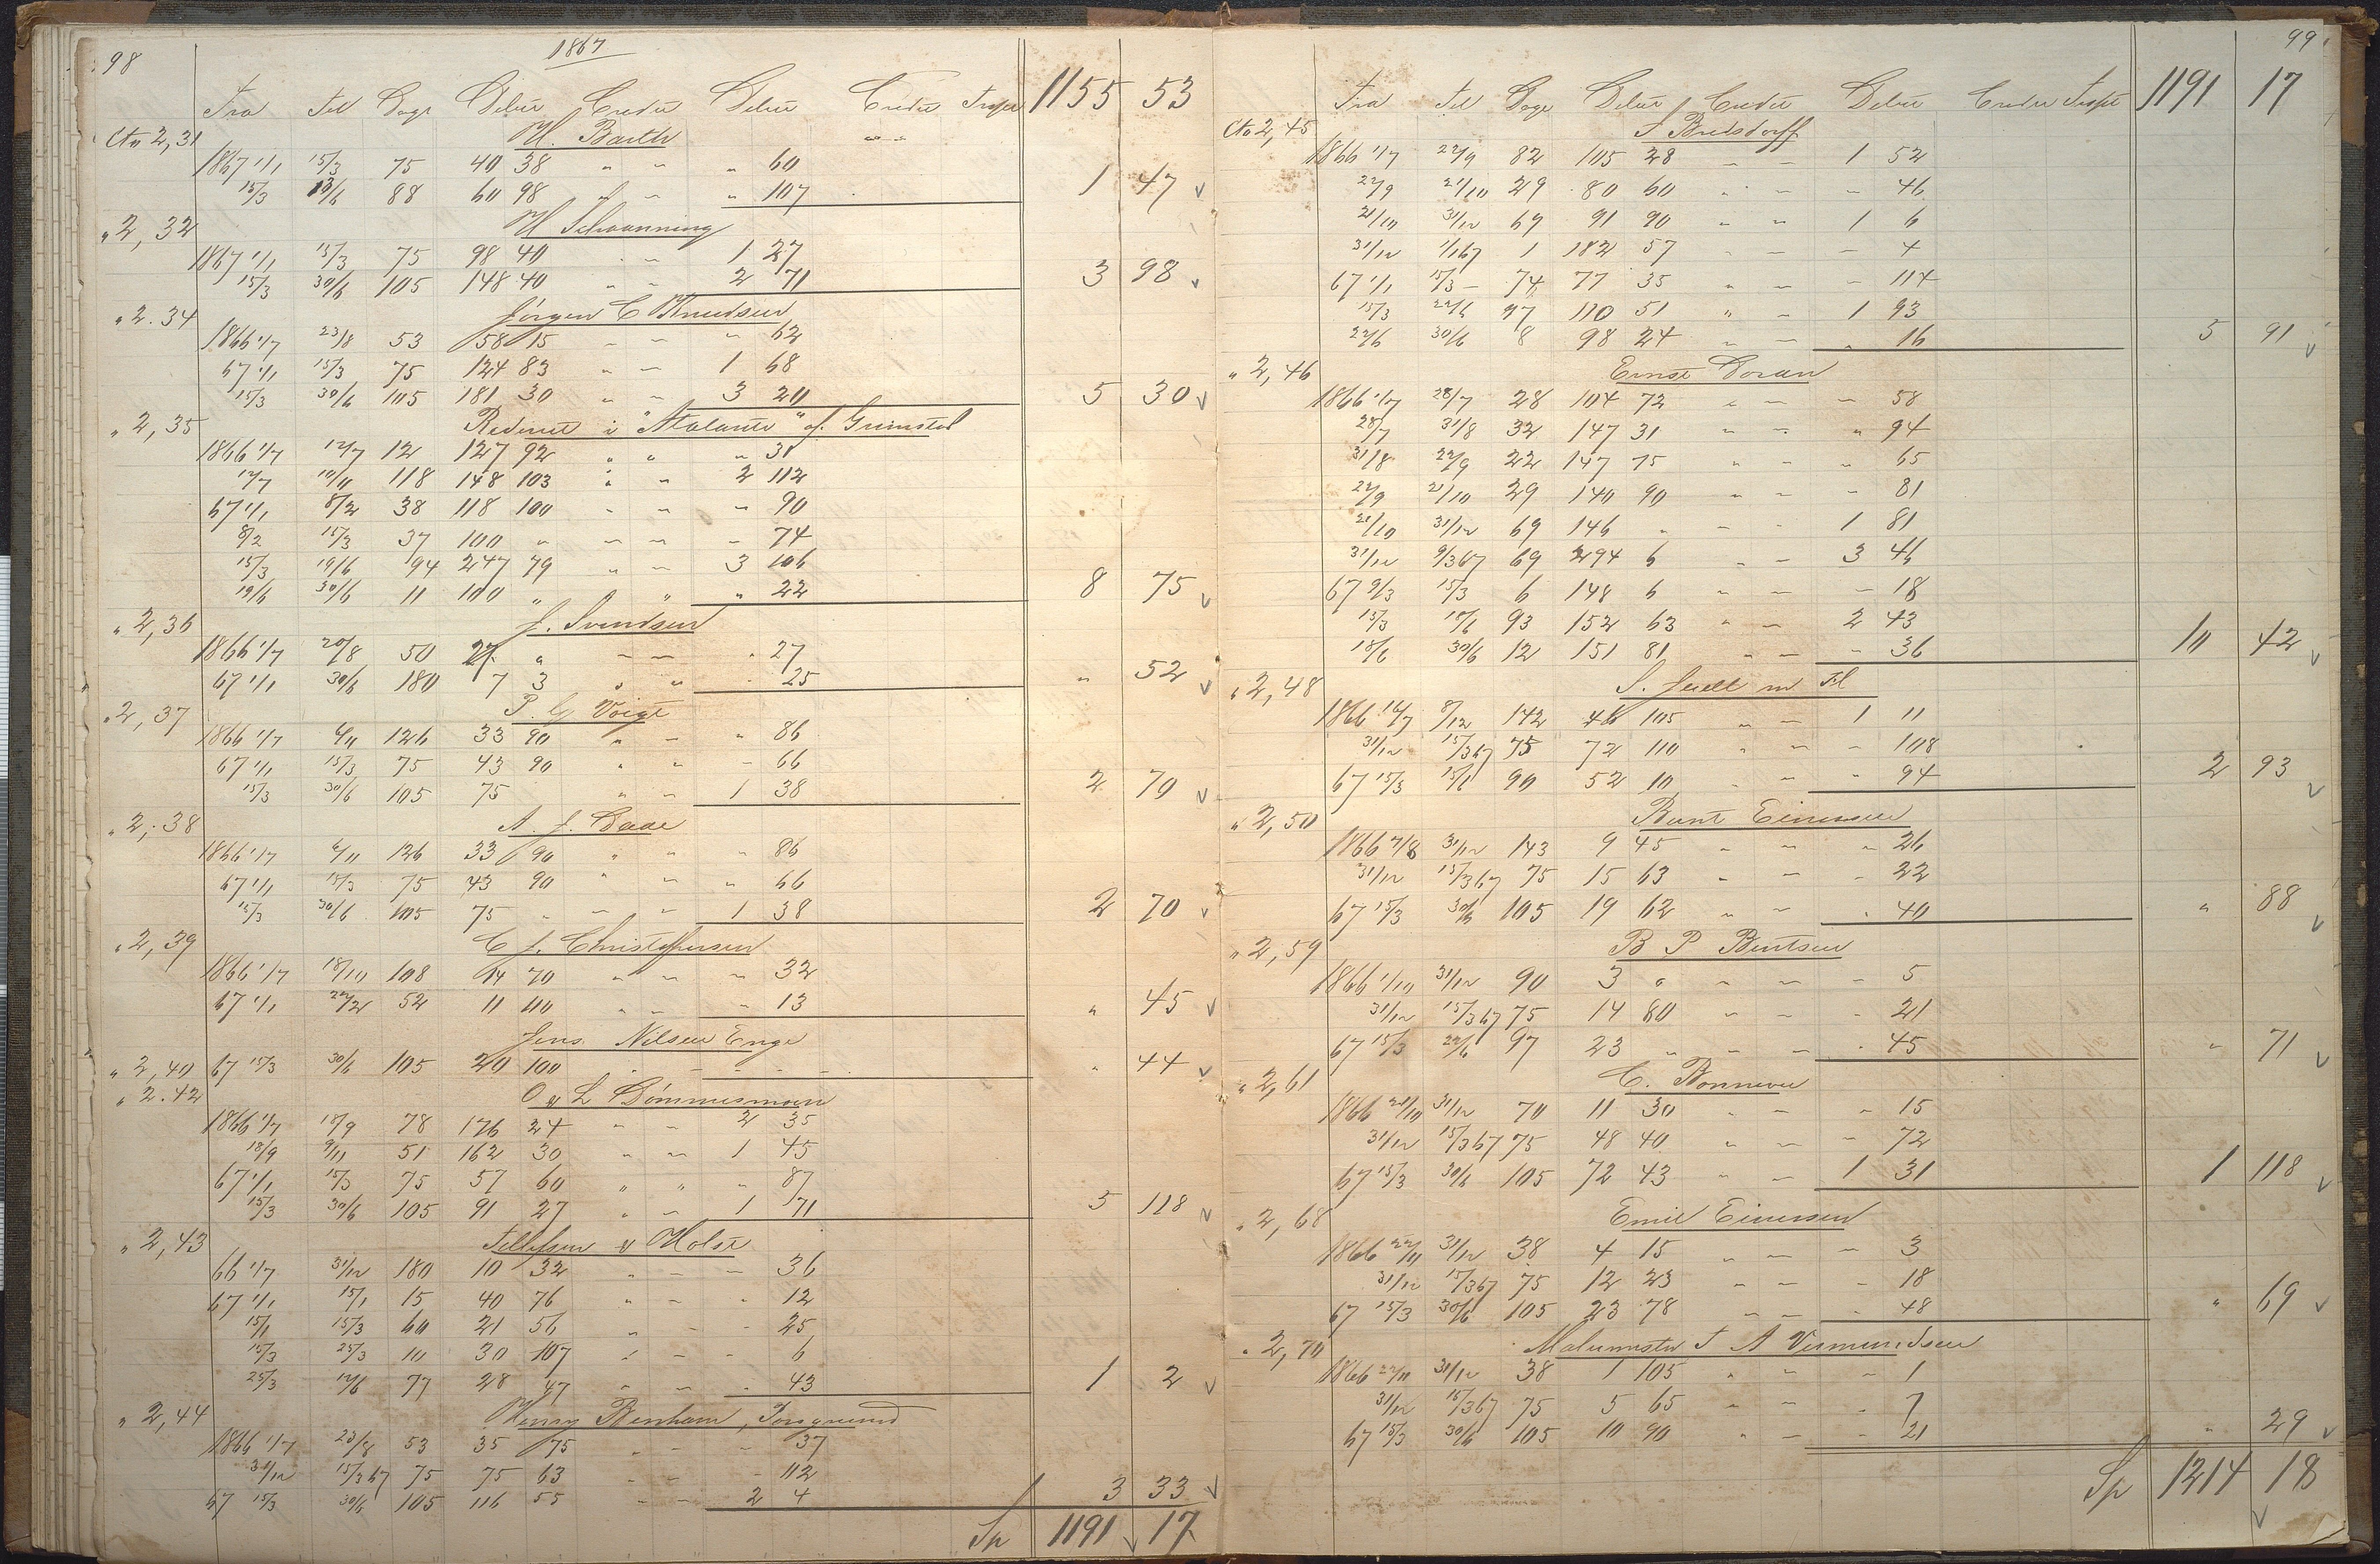 98
1867
Fra Til Dage Debet Credit Debet Credit Tropr 1155 53
Cto 2,31 H. Barth " "
1867 1/1 15/3 75 40 38 " " " 60
15/3 13/6 88 60 98 " " " 107 1 47
" 2,32 H Schaanning
1867 1/1 15/3 75 98 40 " " 1 27
15/3 30/6 105 148 40 " " 2 71 3 98
" 2.34 Jørgen C Knudsen
1866 1/7 23/8 53 58 15 " " " 62
67 1/1 15/3 75 124 83 " " 1 68
15/3 30/6 105 181 30 " " 3 20 5 30
" 2,35 Rederiet i "Atalanta" af Grimstad
1866 1/7 12/7 12 127 92 " " " 31
12/7 10/11 118 148 103 " " 2 112
67 1/1 8/2 38 118 100 " " " 90
8/2 15/3 37 100 " " " " 74
15/3 19/6 94 247 79 " " 3 106
19/6 30/6 11 100 " " " 22 8 75
" 2,36 J. Svendsen
1866 1/7 20/8 50 27 " " " " 27
67 1/1 30/6 180 7 3 " " " 25 " 52
" 2,37 P. G Voigt
1866 1/7 6/11 126 33 90 " " " 86
67 1/1 15/3 75 43 90 " " " 66
15/3 30/6 105 75 " " 1 38 2 70
" 2,38 A. J. Daae
1866 1/7 6/11 126 33 90 " " " 86
67 1/1 15/3 75 43 90 " " " 66
15/3 30/6 105 75 " " " 1 38 2 70
" 2,39 C J. Christophersen
1866 1/7 18/10 108 14 70 " " " 32
67 1/1 22/2 52 11 110 " " " 13 " 45
Jens Nilsen Enge
" 2,40 67 15/3 30/6 105 20 100 " " " " " 44
" 2.42 O & L Dømmesmoen
1866 1/7 18/9 78 176 24 " " 2 35
18/9 9/11 51 162 30 " " 1 45
67 1/1 15/3 75 57 60 " " " 87
15/3 30/6 105 91 27 " " 1 71 5 118
" 2,43 Tellefsen & Holst
66 1/7 31/12 180 10 32 " " " 36
67 1/1 15/1 15 40 76 " " " 12
15/1 15/3 60 21 56 " " " 25
15/3 25/3 10 30 107 " " " 6
25/3 12/6 77 28 47 " " " 43 1 2
" 2,44 Henry Benham, Porsgrund
1866 1/7 23/8 53 35 75 " " " 37
31/12 15/3 67 75 75 63 " " " 112
67 15/3 30/6 105 116 55 " " 2 4 3 33
Sp 1191 17
99
Fra Til Dage Debet Credit Debet Credit Tropr 1191 17
Cto 2,45 J Bredsdorff
1866 1/7 22/9 82 105 28 " " 1 52
22/9 21/10 29 80 60 " " " 46
21/10 31/12 69 91 90 " " 1 6
31/12 1/1 67 1 182 57 " " " 4
67 1/1 15/3 74 77 35 " " " 114
15/3 22/6 97 110 51 " " 1 93
22/6 30/6 8 98 24 " " " 16 5 91
" 2,46 Ernst Doran
1866 1/7 28/7 28 104 72 " " " 58
28/7 31/8 32 147 31 " " " 94
31/8 22/9 22 147 75 " " " 65
22/9 21/10 29 140 90 " " " 81
21/10 31/12 69 146 " " " 1 81
31/12 9/3 67 69 294 6 " " 3 46
67 9/3 15/3 6 148 6 " " " 18
15/3 18/6 93 152 63 " " 2 43
18/6 30/6 12 151 81 " " " 36 10 42
" 2,48 S. Juell m Fl
1866 16/7 8/12 142 46 105 " " 1 11
31/12 15/3 67 75 72 110 " " " 108
67 15/3 15/6 90 52 10 " " 94 2 93
" 2,50 Bernt Einersen
1866 7/8 31/12 143 9 45 " " " 26
31/12 15/3 67 75 15 63 " " " 22
67 15/3 30/6 105 19 62 " " " 40 " 88
" 2,59 B P Berntsen
1866 1/10 31/12 90 3 " " " " 5
31/12 15/3 67 75 14 80 " " " 21
67 15/3 22/6 97 23 " " " " 45 " 71
" 2,61 C. Bonnevie
1866 21/10 31/12 70 11 30 " " " 15
31/12 15/3 67 75 48 40 " " " 72
67 15/3 30/6 105 72 43 " " 1 31 1 118
" 2,68 Emil Einersen
1866 22/11 31/12 38 4 15 " " " 3
31/12 15/3 67 75 12 23 " " " 18
67 15/3 30/6 105 23 78 " " " 48 " 69
" 2,70 Malermester T A Vermundsen
1866 22/11 31/12 38 1 105 " " " 1
31/12 15/3 67 75 5 65 " " " 7
67 15/3 30/6 105 10 90 " " " 21 " 29
Sp 1214 18